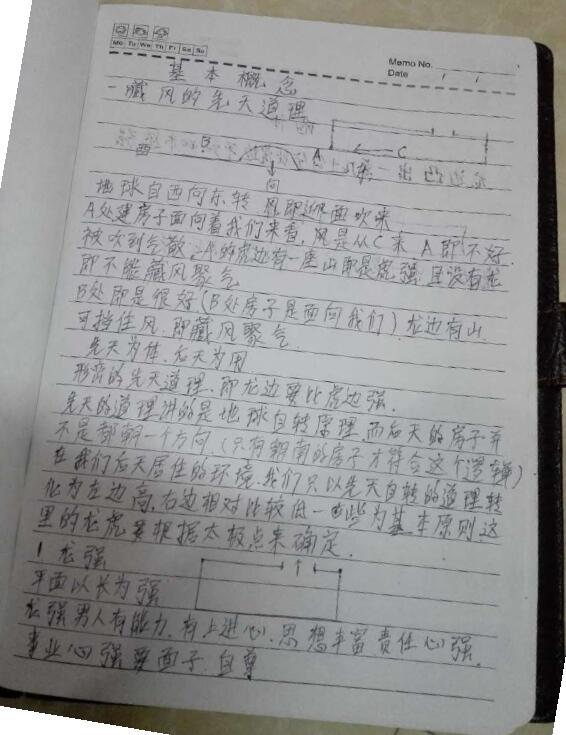 Mo Tu We Th Fr Sa Su
Memo No.
Date / /
基本概念
一藏风的先天道理
西
A
C
向
地球自西向东转 风即迎面吹来
A处建房子面向着我们来看,风是从C来 A即不好.
被吹到气散 A的虎边有一座山即是虎强 且没有龙
即不能藏风聚气
B处即是很好(B处房子是面向我们)龙边有山
可挡住风.即藏风聚气
先天为体.后天为用
形峦的先天道理.即龙边要比虎边强.
先天的道理讲的是地球自转原理.而后天的房子并
不是都朝一个方向.(只有朝南的房子才符合这个逻辑)
在我们后天居住的环境.我们只以先天自转的道理转
化为左边高.右边相对比较低一些为基本原则这
里的龙虎要根据太极点来确定.
1 龙强
平面以长为强
龙强男人有能力.有上进心.思想丰富责任心强.
事业心强要面子.自尊